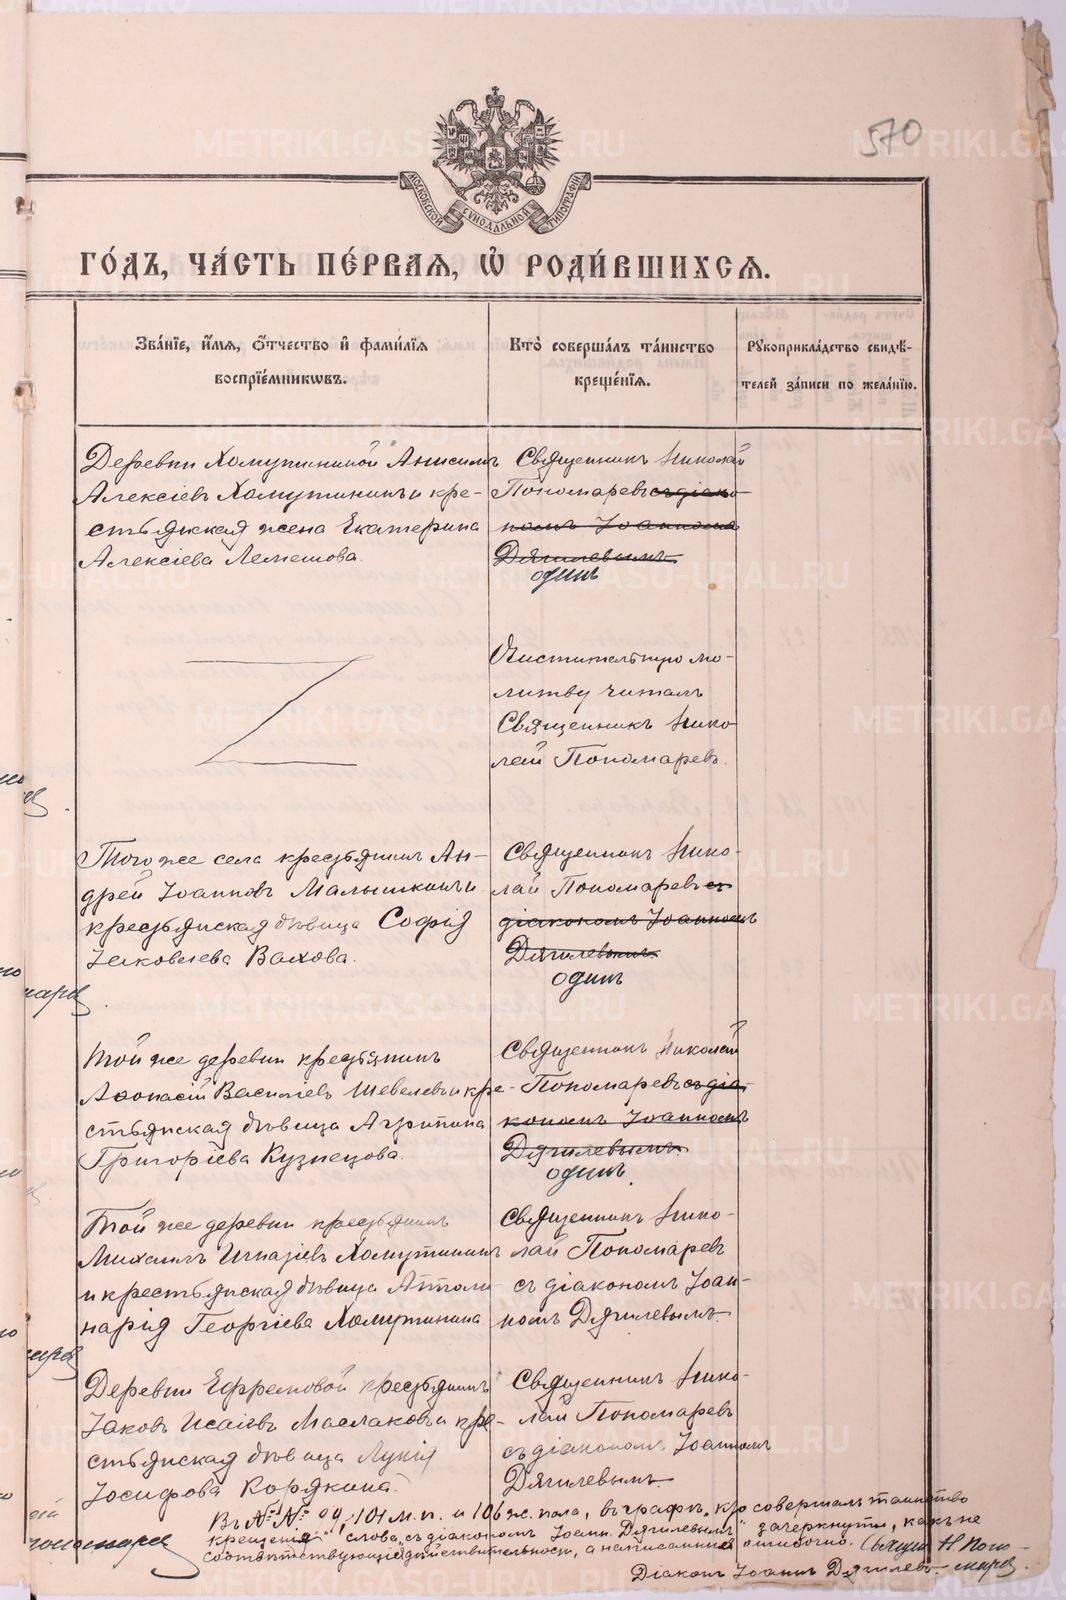 570
МОСКОВСКОЙ СУНОДАЛЬНОЙ ТИПОГРАФІИ
ГО́ДЪ, ЧА́СТЬ ПЕ́РВАѦ, Ѽ РОДИ́ВШИХСѦ.
Зва́нїе, и́мѧ, ѻ҆́тчество и҆ фами́лїѧ
воспрїе́мникѡвъ.
Кто̀ соверша́лъ та́инство
креще́нїѧ.
Рꙋкоприкла́дство свидѣ́-
телей за́писи по жела́нїю.
Деревни Хомутининой Анисимъ
Алексіевъ Хомутининъ и кре-
стьянская жена Екатерина
Алексіева Лемешова.
Священникъ Николай
Пономаревъ съ діако-
номъ Іоанномъ
Дягилевымъ
одинъ
Очистительную мо-
литву читалъ
Священникъ Нико-
лай Пономаревъ.
Того же села крестьянинъ Ан-
дрей Іоанновъ Малышкинъ и
крестьянская дѣвица Софія
Іаковлева Вахова.
Священникъ Нико-
лай Пономаревъ съ
діакономъ Іоанномъ
Дягилевымъ
одинъ
Той же деревни крестьянинъ
Аѳонасій Василіевъ Шевелевъ и кре-
стьянская дѣвица Агрипина
Григоріева Кузнецова.
Священникъ Николай
Пономаревъ съ діа-
кономъ Іоанномъ
Дягилевымъ.
одинъ.
Той же деревни крестьянинъ
Михаилъ Игнатіевъ Хомутининъ
и крестьянская дѣвица Аполи-
нарія Георгіева Хомутинина.
Священникъ Нико-
лай Пономаревъ
съ діакономъ Іоан-
номъ Дягилевымъ.
Деревни Ефремовой крестьянинъ
Іаковъ Исаіевъ Маслаковъ и кре-
стьянская дѣвица Лукія
Іосифова Корякина.
Священникъ Нико-
лай Пономаревъ
съ діакономъ Іоанномъ
Дягилевымъ.
Въ №№ 99, 101 м.п. и 106 ж. пола, въ графѣ „кто совершалъ таинство
крещенія" слова „съ діакономъ Іоанн. Дягилевымъ" зачеркнуты, какъ не
соотвѣтствующія дѣйствительности, а написанныя ошибочно. Священ. Н. Поно-
марев.
Діаконъ Іоаннъ Дягилевъ.
METRIKI.GASO-URAL.RU